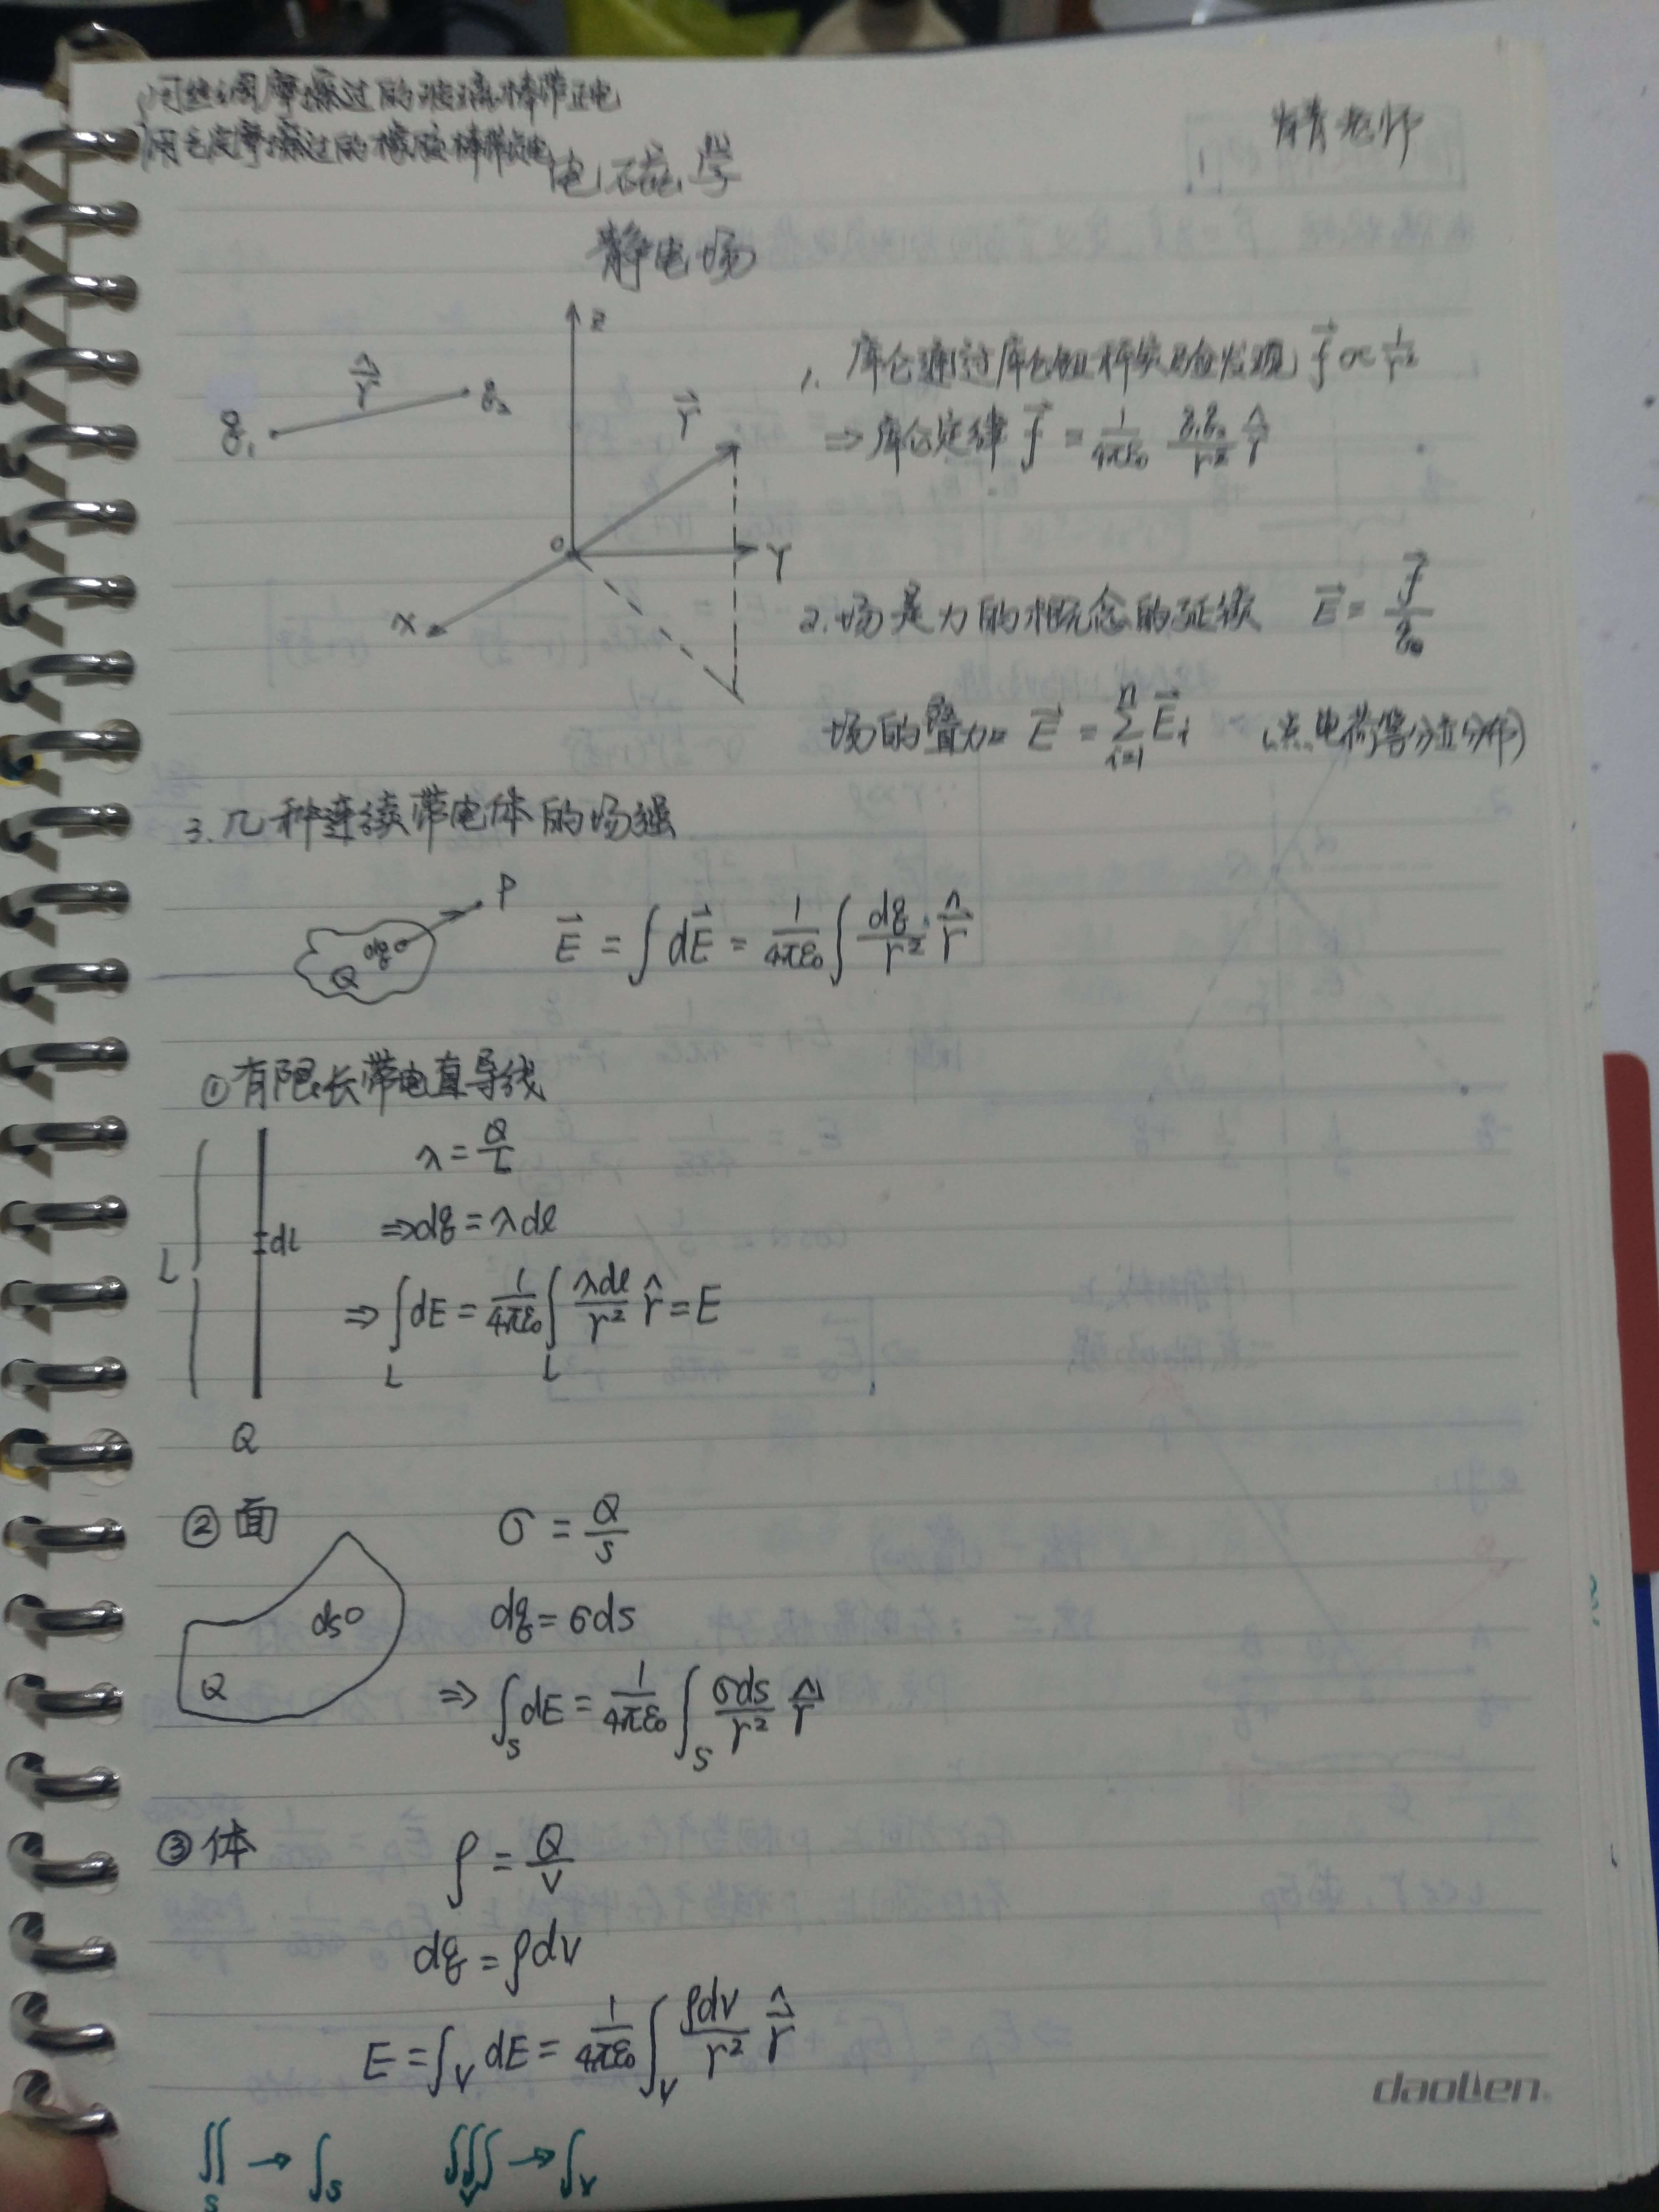 用丝绸摩擦过的玻璃棒带正电
用毛皮摩擦过的橡胶棒带负电
老师
电磁学
静电场
q₁ r̂ q₂
Z
r⃗
O
Y
X
1. 库仑通过库仑扭秤实验发现 f⃗ ∝ 1/r²
⇒ 库仑定律 f⃗ = 1/4πε₀ q₁q₂/r² r̂
2. 场是力的概念的延续 E⃗ = f⃗/q₀
场的叠加 E⃗ = ∑ᵢ₌₁ⁿ E⃗ᵢ (点电荷等分立分布)
3. 几种连续带电体的场强
P
dq
Q
E⃗ = ∫dE⃗ = 1/4πε₀ ∫ dq/r² r̂
①有限长带电直导线
λ = Q/L
L
dl
⇒dq = λdl
⇒ ∫_L dE = 1/4πε₀ ∫_L λdl/r² r̂ = E
Q
②面
σ = Q/S
ds
Q
dq = σds
⇒ ∫_S dE = 1/4πε₀ ∫_S σds/r² r̂
③体
ρ = Q/V
dq = ρdV
E = ∫_V dE = 1/4πε₀ ∫_V ρdV/r² r̂
∬_S → ∫_S ∭_V → ∫_V
daolien.